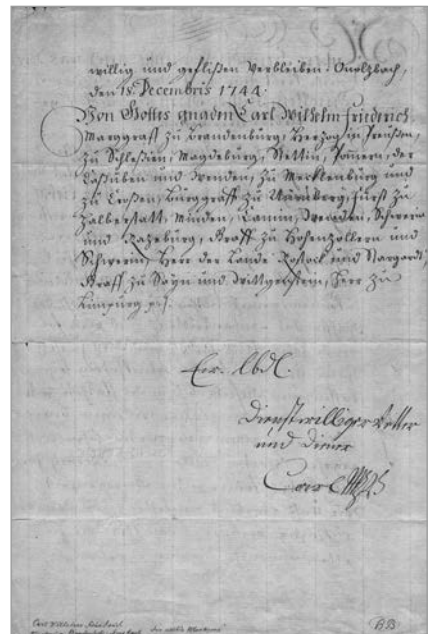 willig und geflißen verbleiben. Onolzbach,
den 18. Decembris 1744.
Von Gottes gnaden Carl Wilhelm Friedrich
Marggraff zu Brandenburg, Herzog in Preußen,
zu Schlesien, Magdeburg, Stettin, Pommern, der
Caßuben und Wenden, zu Mecklenburg und
zu Croßen, Burggraff zu Nürnberg, Fürst zu
Halberstatt, Minden, Camin, Wenden, Schwerin
und Razeburg, Graff zu Hohenzollern und
Schwerin, Herr der Lande Rostock und Stargardt,
Graff zu Sayn und Wittgenstein, Herr zu
Limpurg
Ew. Lbd.
Dienstwilliger Vetter
und Diener
Carl
Carl Wilhelm Friedrich
BB